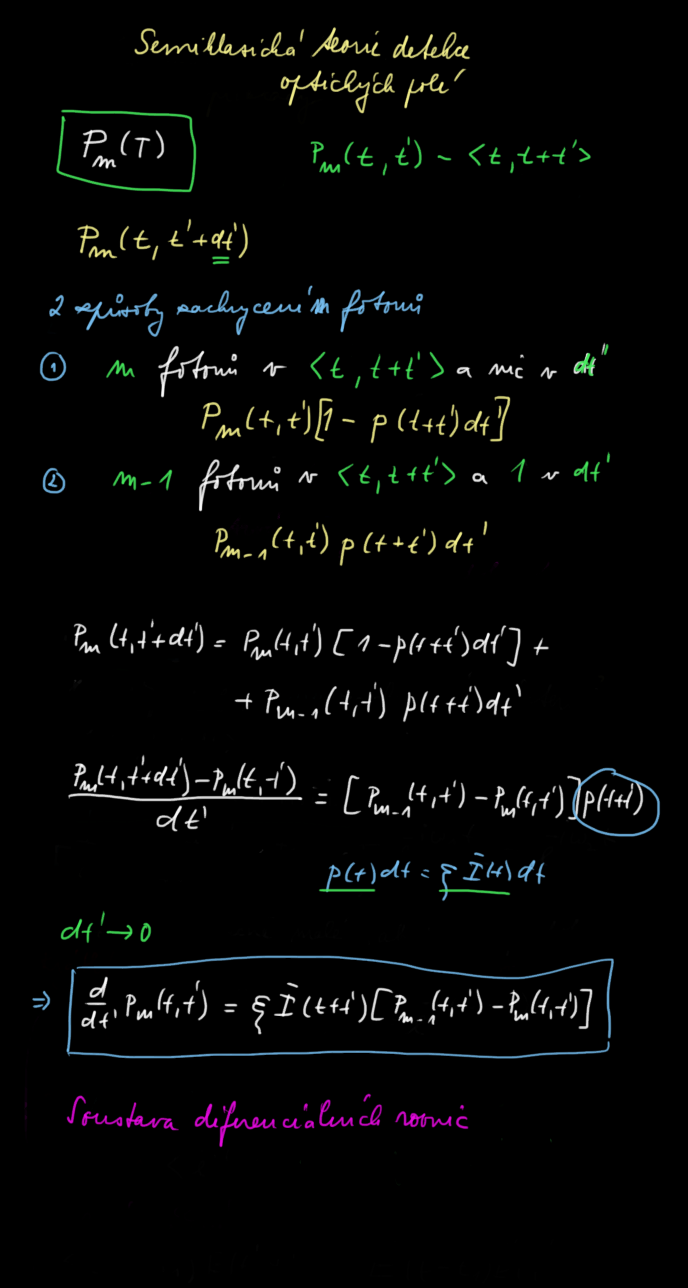 Semiklasická teorie detekce
optických polí
P_m(T)
P_m(t,t') ~ <t,t+t'>
P_m(t, t'+dt')
2 způsoby zachycení m fotonů
① m fotonů v <t,t+t'> a nic v dt"
P_m(t,t')[1 - p(t+t')dt']
② m-1 fotonů v <t,t+t'> a 1 v dt'
P_{m-1}(t,t') p(t+t') dt'
P_m(t,t'+dt') = P_m(t,t') [1-p(t+t')dt'] +
+ P_{m-1}(t,t') p(t+t')dt'
(P_m(t,t'+dt') - P_m(t,t')) / dt' = [P_{m-1}(t,t') - P_m(t,t')] p(t+t')
p(t)dt = ξ Ī(t) dt
dt' → 0
⇒ d/dt' P_m(t,t') = ξ Ī(t+t') [P_{m-1}(t,t') - P_m(t,t')]
Soustava diferenciálních rovnic